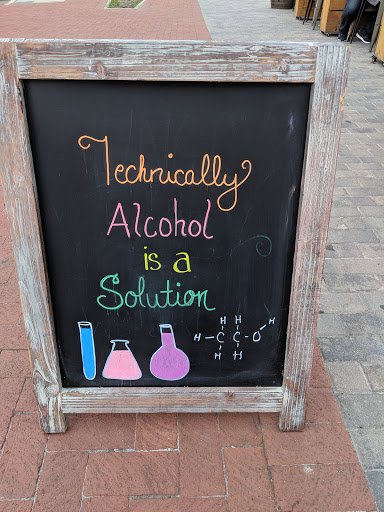 Technically
Alcohol
is a
Solution
H H H
H-C-C-O
H H